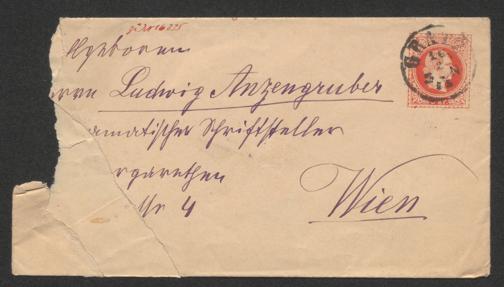 GRAZ
lgeboren
rrn Ludwig Anzengruber
amatischer Schriftsteller
rgarethen
Nr 4
Wien